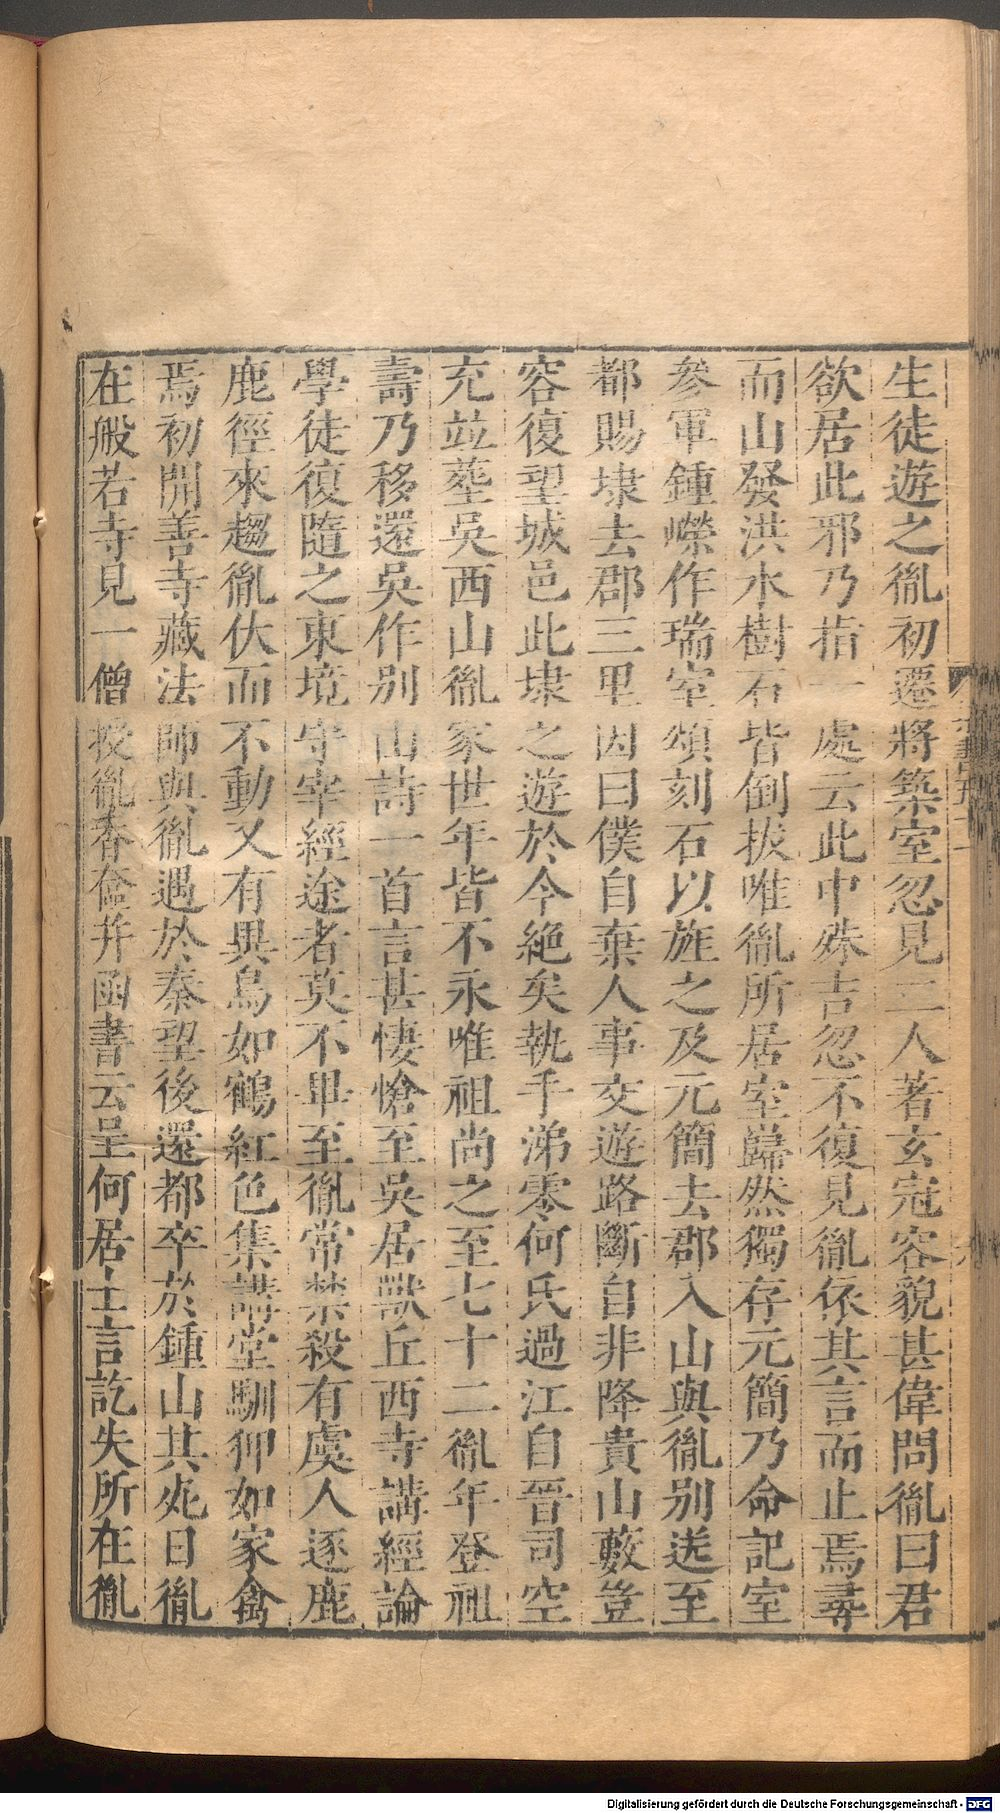 生徒遊之胤初遷將築室忽見二人著玄冠容貌甚偉問胤曰君
欲居此邪乃指一處云此中殊吉忽不復見胤依其言而止焉尋
而山發洪水樹石皆倒拔唯胤所居室巋然獨存元簡乃命記室
參軍鍾嶸作瑞室頌刻石以旌之及元簡去郡入山與胤別送至
都賜埭去郡三里因曰僕自棄人事交遊路斷自非降貴山藪豈
容復望城邑此埭之遊於今絶矣執手涕零何氏過江自晉司空
充並葬吳西山胤家世年皆不永唯祖尚之至七十二胤年登祖
壽乃移還吳作別山詩一首言甚悽愴至吳居獸丘西寺講經論
學徒復隨之東境守宰經途者莫不畢至胤常禁殺有虞人逐鹿
鹿徑來趨胤伏而不動又有異鳥如鶴紅色集講堂馴狎如家禽
焉初開善寺藏法師與胤遇於秦望後還都卒於鍾山其死日胤
在般若寺見一僧授胤香奩并函書云呈何居士言訖失所在胤
Digitalisierung gefördert durch die Deutsche Forschungsgemeinschaft - DFG